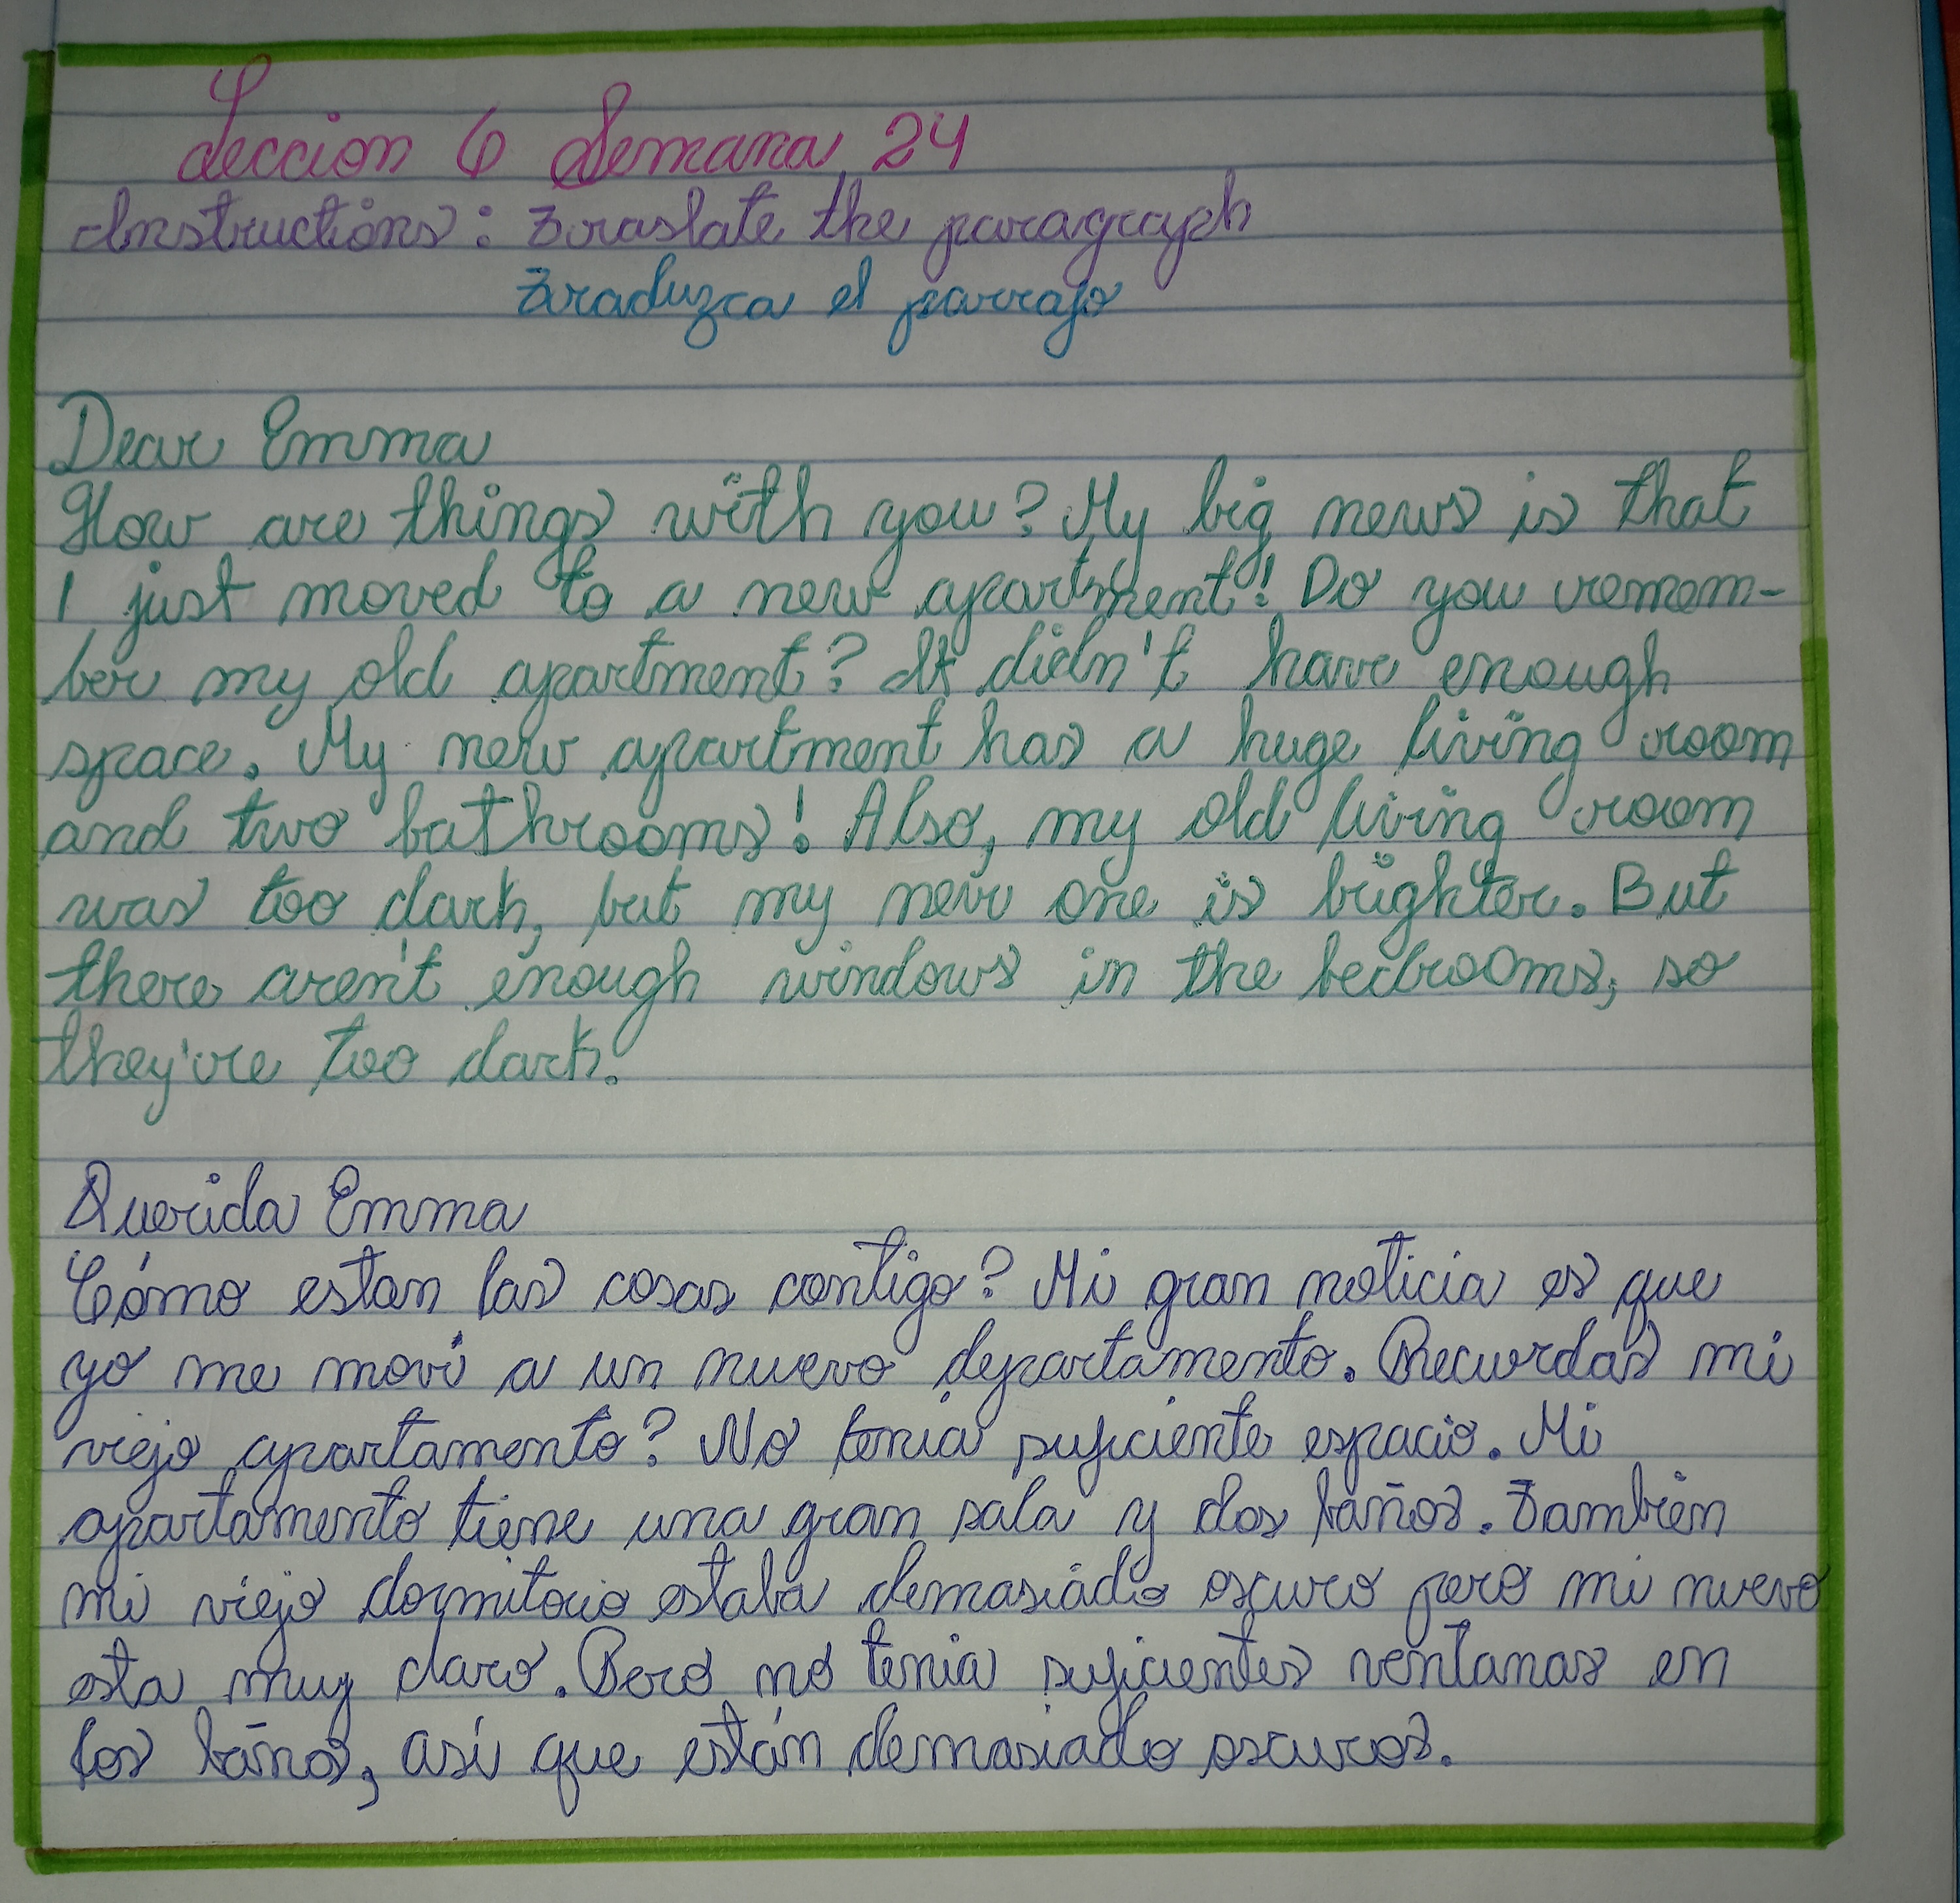 Leccion 6 Semana 24
Instructions: Traslate the paragraph
Traduzca el parrafo
Dear Emma
How are things with you? My big news is that
I just moved to a new apartment! Do you remem-
ber my old apartment? It didn't have enough
space. My new apartment has a huge living room
and two bathrooms! Also, my old living room
was too dark, but my new one is brighter. But
there aren't enough windows in the bedrooms, so
they're too dark.
Querida Emma
Cómo estan las cosas contigo? Mi gran noticia es que
yo me moví a un nuevo departamento. Recuerdas mi
viejo apartamento? No tenia suficiente espacio. Mi
apartamento tiene una gran sala y dos baños. Tambien
mi viejo dormitorio estaba demasiado oscuro pero mi nuevo
esta muy claro. Pero no tenia suficientes ventanas en
los baños, así que están demasiado oscuros.